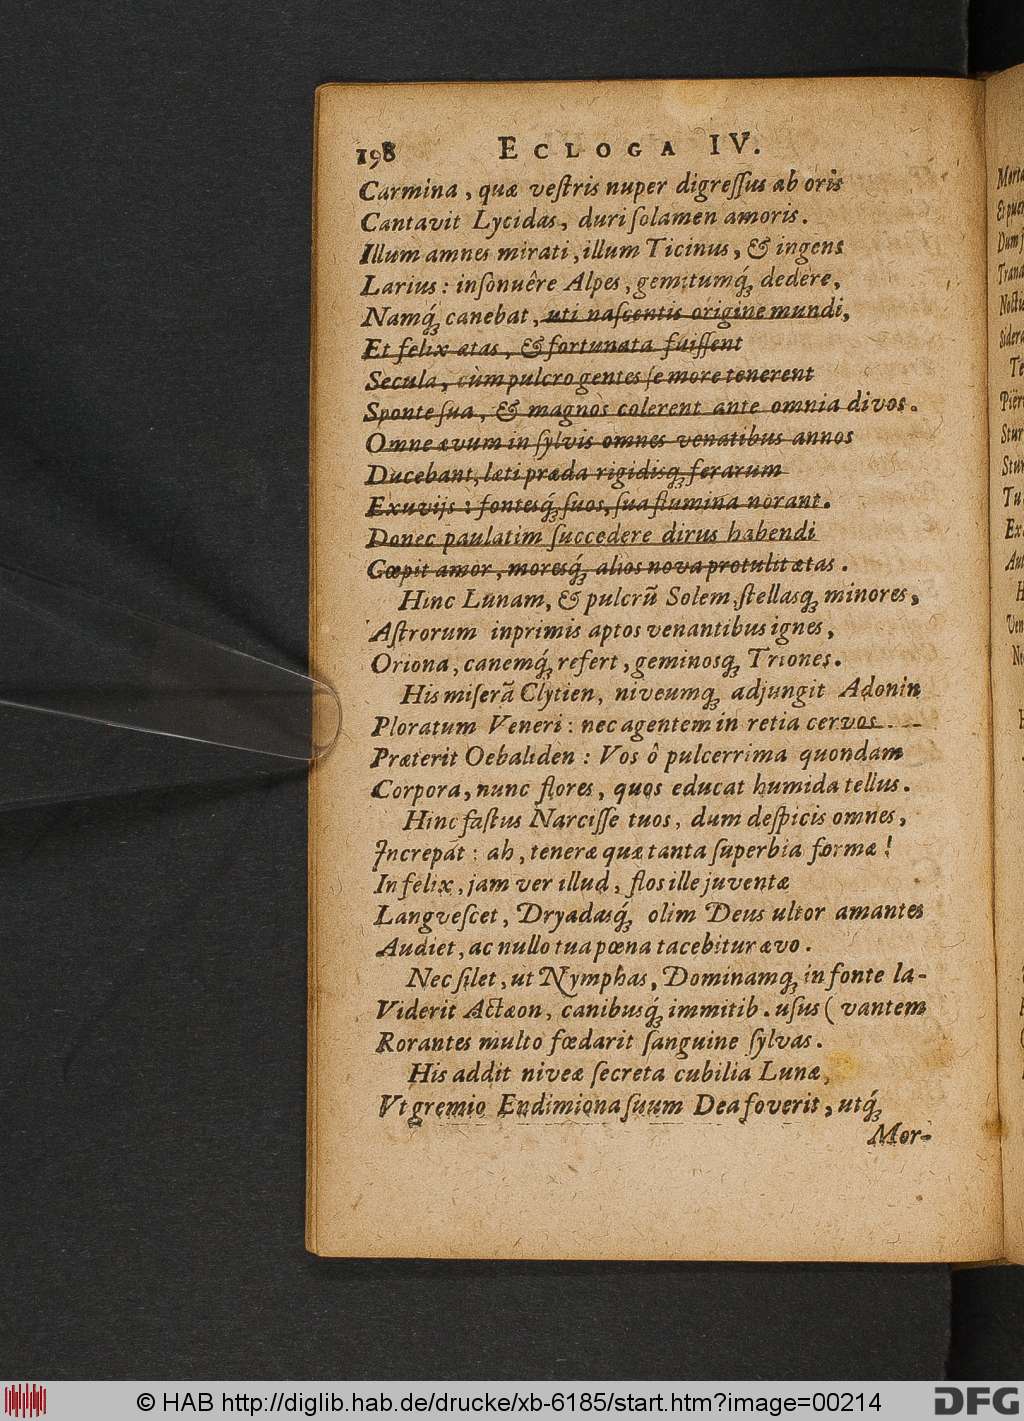 198 ECLOGA IV.
Carmina, quæ veſtris nuper digreſſus ab oris
Cantavit Lycidas, duri ſolamen amoris.
Illum amnes mirati, illum Ticinus, & ingens
Larius: inſonuêre Alpes, gemitumq́ꝫ dedere,
Namq́ꝫ canebat, uti naſcentis origine mundi,
Et felix ætas, & fortunata fuiſſent
Secula, cùm pulcro gentes ſe more tenerent
Sponte ſua, & magnos colerent ante omnia divos.
Omne ævum in ſylvis omnes venatibus annos
Ducebant, læti præda rigidisqꝫ ferarum
Exuvijs: fontesq́ꝫ ſuos, ſua flumina norant.
Donec paulatim ſuccedere dirus habendi
Cœpit amor, moresq́ꝫ alios nova protulit ætas.
Hinc Lunam, & pulcrũ Solem, ſtellasqꝫ minores,
Aſtrorum inprimis aptos venantibus ignes,
Oriona, canemq́ꝫ refert, geminosqꝫ Triones.
His miſerã Clytien, niveumqꝫ adjungit Adonin
Ploratum Veneri: nec agentem in retia cervos
Præterit Oebaliden: Vos ô pulcerrima quondam
Corpora, nunc flores, quos educat humida tellus.
Hinc faſtus Narciſſe tuos, dum deſpicis omnes,
Increpat: ah, teneræ quæ tanta ſuperbia formæ!
Infelix, jam ver illud, flos ille juventæ
Langveſcet, Dryadasq́ꝫ olim Deus ultor amantes
Audiet, ac nullo tua pœna tacebitur ævo.
Nec ſilet, ut Nymphas, Dominamqꝫ in fonte la-
Viderit Actæon, canibusq́ꝫ immitib. uſus ( vantem
Rorantes multo fœdarit ſanguine ſylvas.
His addit niveæ ſecreta cubilia Lunæ,
Vt gremio Endimiona ſuum Dea foverit, utq́ꝫ
Mor-
© HAB http://diglib.hab.de/drucke/xb-6185/start.htm?image=00214
DFG